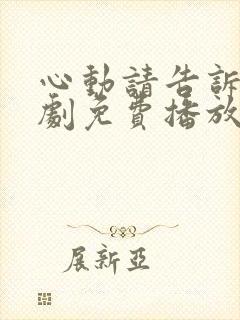 心動請告訴
劇免費播放
展新亞